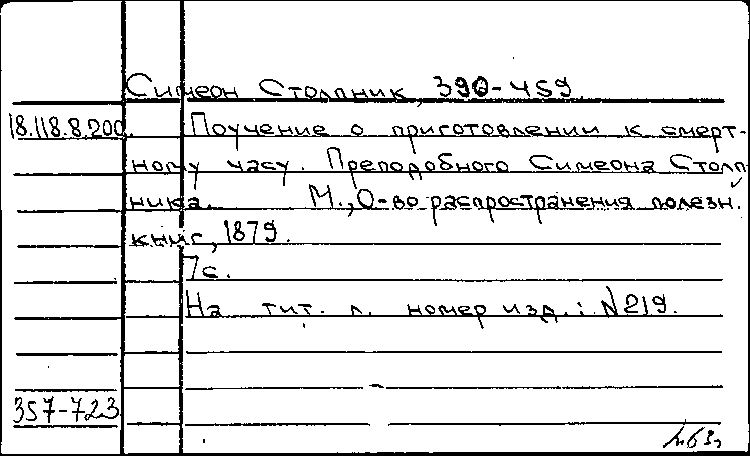 Симеон Столпник, 390-459.
18.118.8.200. Поучение о приготовлении к смерт-
ному часу. Преподобного Симеона Столп-
ника. М., О-во распространения полезн.
книг, 1879.
7с.
На тит. л. номер изд.: N219.
357-723